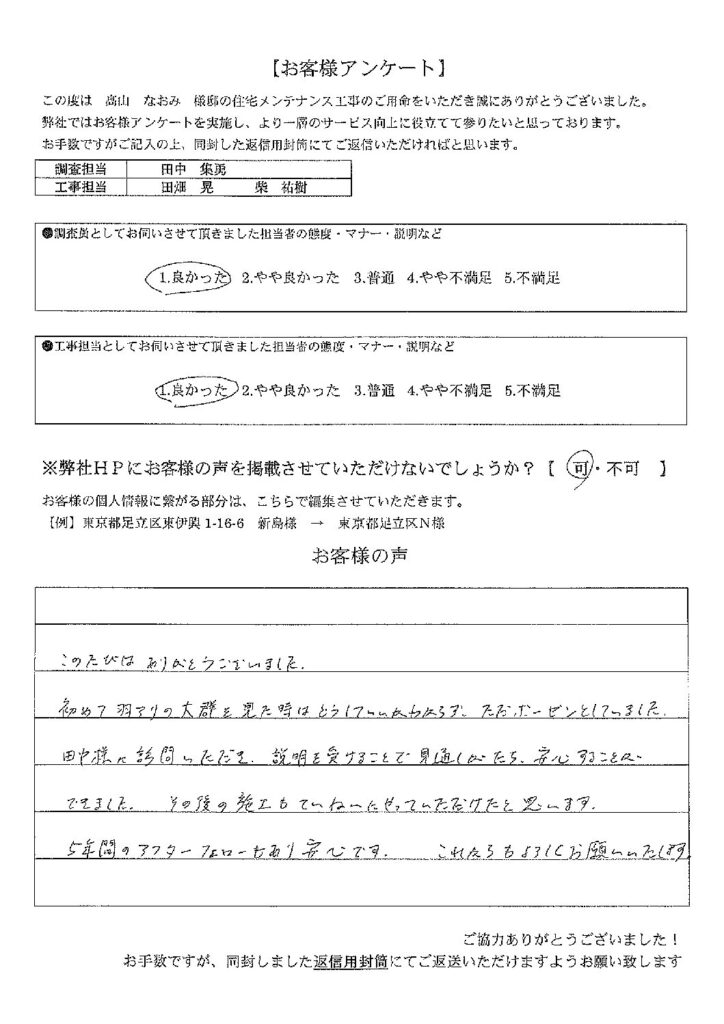 【お客様アンケート】
この度は　高山　なおみ　様邸の住宅メンテナンス工事のご用命をいただき誠にありがとうございました。
弊社ではお客様アンケートを実施し、より一層のサービス向上に役立てて参りたいと思っております。
お手数ですがご記入の上、同封した返信用封筒にてご返信いただければと思います。
調査担当　田中　集勇
工事担当　田畑　晃　　柴　祐樹
●調査員としてお伺いさせて頂きました担当者の態度・マナー・説明など
1.良かった 2.やや良かった 3.普通 4.やや不満足 5.不満足
●工事担当としてお伺いさせて頂きました担当者の態度・マナー・説明など
1.良かった 2.やや良かった 3.普通 4.やや不満足 5.不満足
※弊社ＨＰにお客様の声を掲載させていただけないでしょうか？【　可・不可　】
お客様の個人情報に繋がる部分は、こちらで編集させていただきます。
【例】東京都足立区東伊興 1-16-6　新島様　→　東京都足立区Ｎ様
お客様の声
このたびは ありがとうございました。
初めて羽アリの大群を見た時はどうしていいかわからず、ただボーゼンとしていました。
田中様に訪問いただき、説明を受けることで見通しがたち、安心することが
できました。　その後の施工もていねいにやっていただけたと思います。
5年間のアフターフォローもあり安心です。　これからもよろしくお願いいたします
ご協力ありがとうございました！
お手数ですが、同封しました返信用封筒にてご返送いただけますようお願い致します